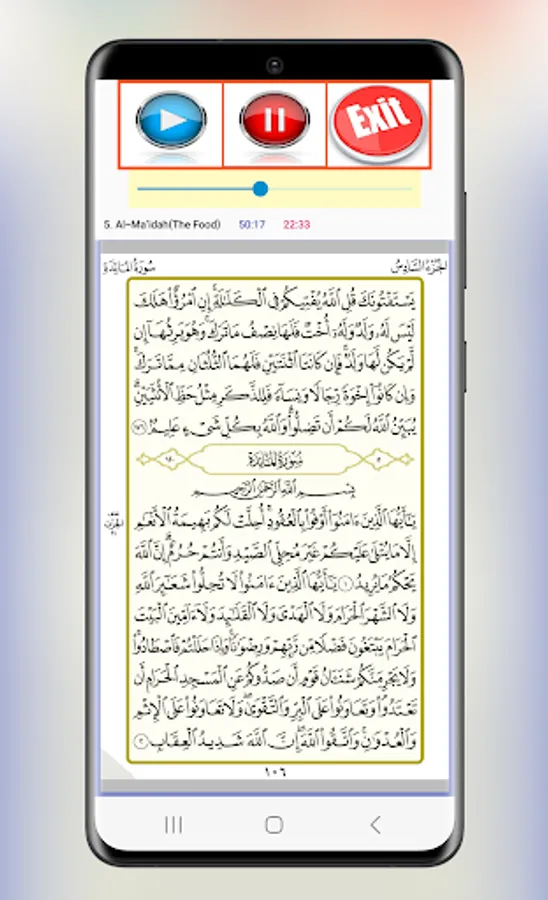 Exit
5. Al-Ma'idah(The Food) 50:17 22:33
سُورَةُ المَائِدَةِ الجُزْءُ السَّادِسُ
يَسْتَفْتُونَكَ قُلِ اللَّهُ يُفْتِيكُمْ فِي الْكَلَالَةِ إِنِ امْرُؤٌا هَلَكَ
لَيْسَ لَهُ وَلَدٌ وَلَهُ أُخْتٌ فَلَهَا نِصْفُ مَا تَرَكَ وَهُوَ يَرِثُهَا إِن
لَّمْ يَكُن لَّهَا وَلَدٌ فَإِن كَانَتَا اثْنَتَيْنِ فَلَهُمَا الثُّلُثَانِ مِمَّا تَرَكَ
وَإِن كَانُوا إِخْوَةً رِّجَالًا وَنِسَاءً فَلِلذَّكَرِ مِثْلُ حَظِّ الْأُنثَيَيْنِ
يُبَيِّنُ اللَّهُ لَكُمْ أَن تَضِلُّوا وَاللَّهُ بِكُلِّ شَيْءٍ عَلِيمٌ ١٧٦
سُورَةُ المَائِدَةِ
بِسْمِ اللَّهِ الرَّحْمَٰنِ الرَّحِيمِ
يَٰأَيُّهَا الَّذِينَ ءَامَنُوا أَوْفُوا بِالْعُقُودِ أُحِلَّتْ لَكُم بَهِيمَةُ الْأَنْعَٰمِ
إِلَّا مَا يُتْلَىٰ عَلَيْكُمْ غَيْرَ مُحِلِّي الصَّيْدِ وَأَنتُمْ حُرُمٌ إِنَّ اللَّهَ
يَحْكُمُ مَا يُرِيدُ ١ يَٰأَيُّهَا الَّذِينَ ءَامَنُوا لَا تُحِلُّوا شَعَٰئِرَ اللَّهِ
وَلَا الشَّهْرَ الْحَرَامَ وَلَا الْهَدْيَ وَلَا الْقَلَٰئِدَ وَلَا ءَامِّينَ الْبَيْتَ
الْحَرَامَ يَبْتَغُونَ فَضْلًا مِّن رَّبِّهِمْ وَرِضْوَٰنًا وَإِذَا حَلَلْتُمْ فَاصْطَادُوا
وَلَا يَجْرِمَنَّكُمْ شَنَـَٔانُ قَوْمٍ أَن صَدُّوكُمْ عَنِ الْمَسْجِدِ الْحَرَامِ أَن
تَعْتَدُوا وَتَعَاوَنُوا عَلَى الْبِرِّ وَالتَّقْوَىٰ وَلَا تَعَاوَنُوا عَلَى الْإِثْمِ
وَالْعُدْوَٰنِ وَاتَّقُوا اللَّهَ إِنَّ اللَّهَ شَدِيدُ الْعِقَابِ ٢
١٠٦